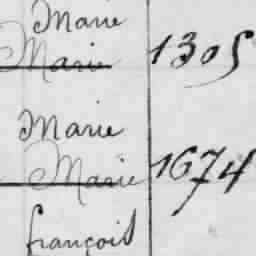 Marie
Marie 1305
Marie
Marie 1674
françois